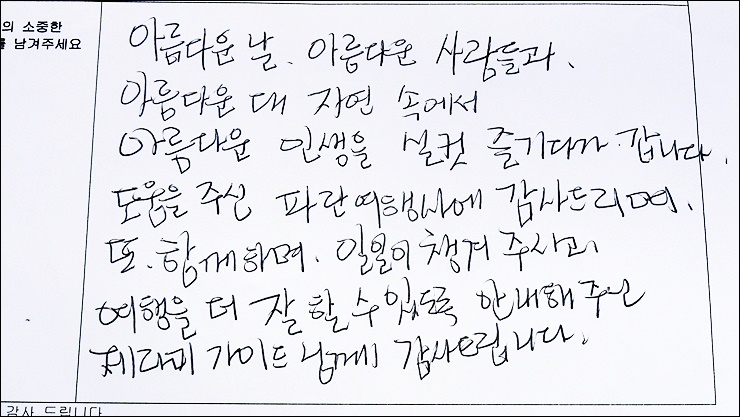 의 소중한
를 남겨주세요
아름다운 날. 아름다운 사람들과.
아름다운 대 자연 속에서
아름다운 인생을 실컷 즐기다가 갑니다.
도움을 주신 파란여행사에 감사드리며.
또. 함께하며. 일일이 챙겨 주시고
여행을 더 잘 할 수 있도록 안내해 주신
가이드님께 감사드립니다.
감사 드립니다